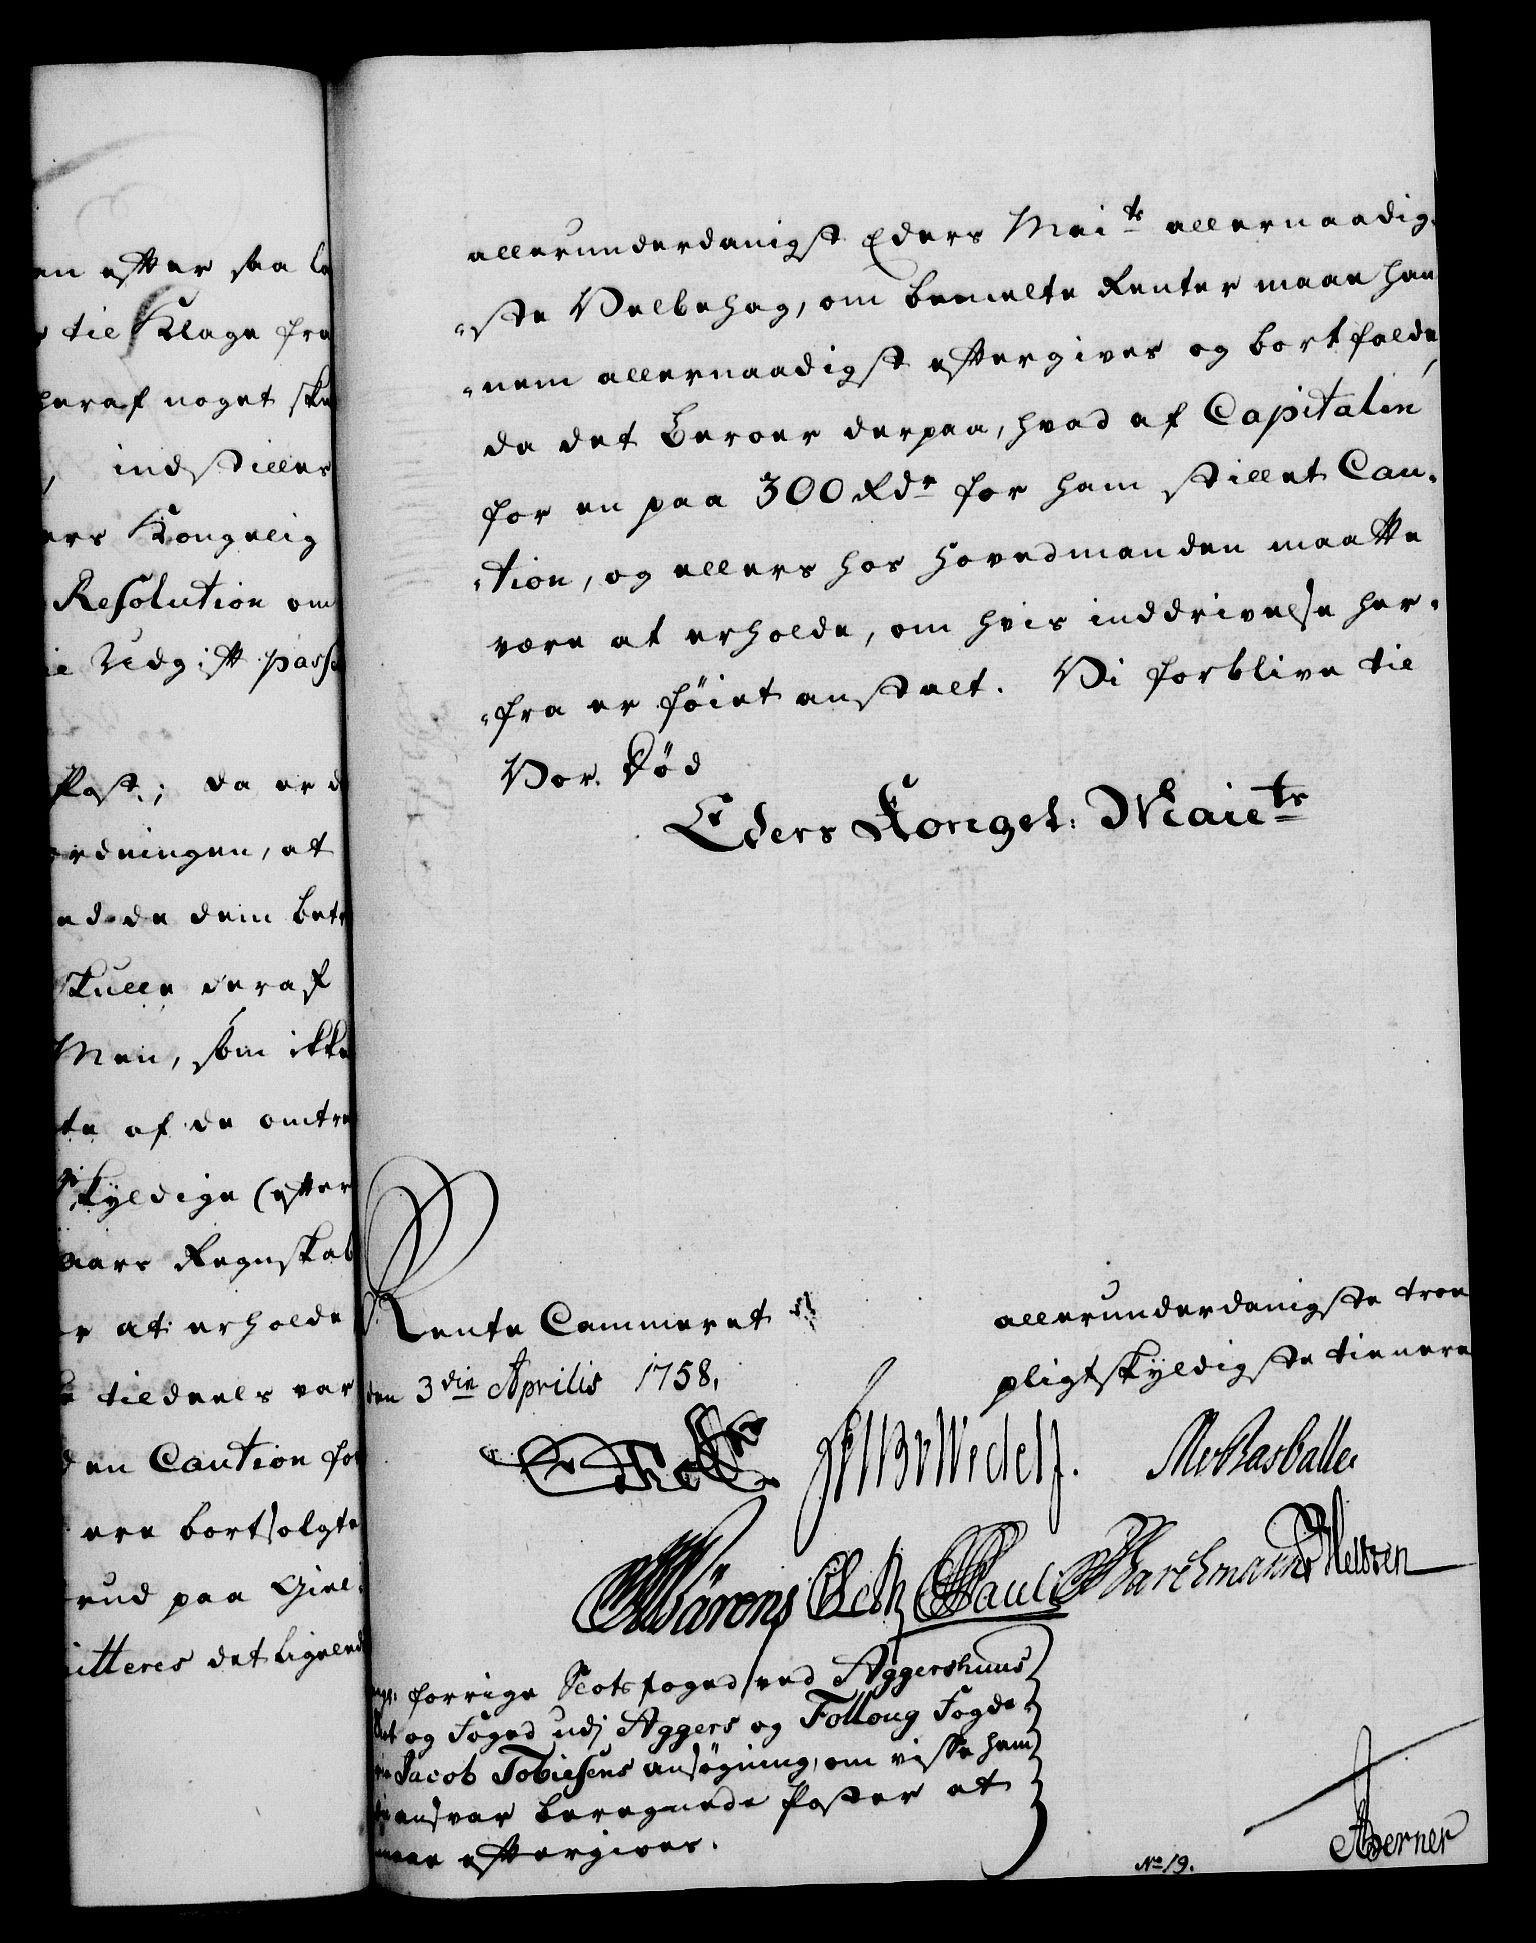 en efter saa la
til Klage fra
heraf noget ske
indstilles
ers Kongelig
Resolution om
Udgift pass
Post; da er d
ordningen, at
ed de dem bet
skulle deraf
Men, som ikke
te af de omtre
skyldige (efter
aars Regnskab
r at erholde
tildeels var
den Caution for
ere bortsolgte
rud paa Giel
itteres det lignend
allerunderdanigst Eders Mai.ts allernaadig-
-ste Velbehag, om bemelte Renter maae han-
-nem allernaadigst eftergives og bortfalde,
da det beroer derpaa, hvad af Capitalen
for en paa 300 Rdr for ham stillet Cau-
-tion, og ellers hos Hovedmanden maatte
være at erholde, om hvis inddrivelse her-
-fra er föiet anstalt. Vi forblive til
Vor Död
Eders Kongel: Maiets
Rente Cammeret
den 3die Aprilis 1758.
allerunderdanigste troe
pligtskyldigste tienere
Wedell.
Barens Beth Pauli Barchmann
forrige Slotsfoged ved Aggershuus
og Foged udj Aggers og Follong Fogde-
Jacob Tobiesens ansögning, om visse ham
ansvar beregnede Poster at
maae eftergives.
No 19.
Berner